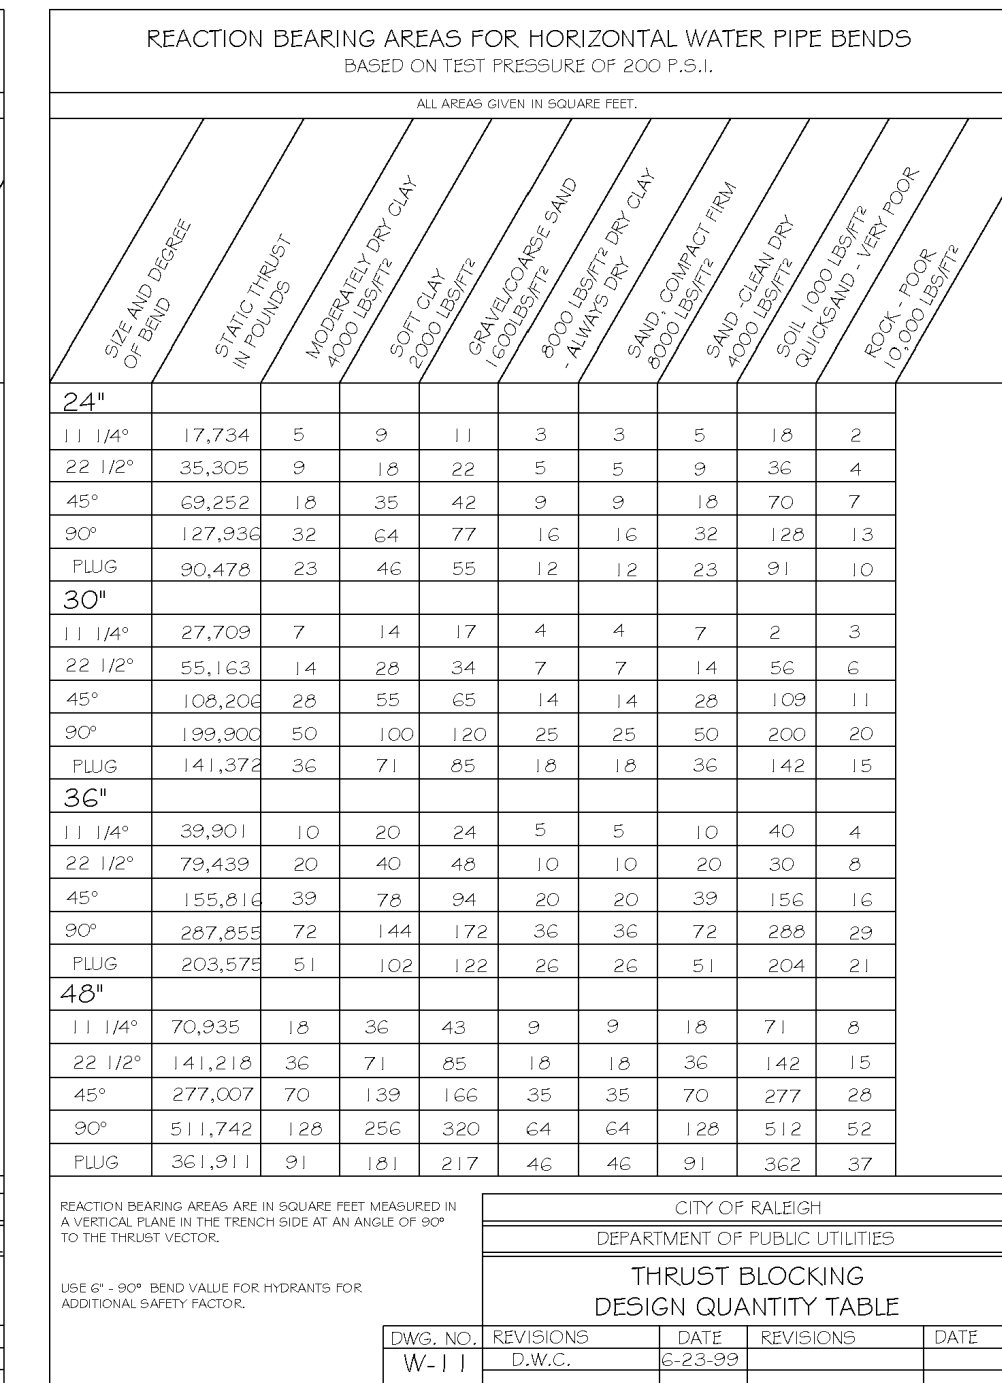 REACTION BEARING AREAS FOR HORIZONTAL WATER PIPE BENDS
BASED ON TEST PRESSURE OF 200 P.S.I.
ALL AREAS GIVEN IN SQUARE FEET.
SIZE AND DEGREE
OF BEND
STATIC THRUST
IN POUNDS
MODERATELY DRY CLAY
4000 LBS/FT²
SOFT CLAY
2000 LBS/FT²
GRAVEL/COARSE SAND
1600LBS/FT²
8000 LBS/FT² DRY CLAY
- ALWAYS DRY
SAND, COMPACT FIRM
8000 LBS/FT²
SAND -CLEAN DRY
4000 LBS/FT²
SOIL 1000 LBS/FT²
QUICKSAND - VERY POOR
ROCK - POOR
10,000 LBS/FT²
24"
11 1/4° 17,734 5 9 11 3 3 5 18 2
22 1/2° 35,305 9 18 22 5 5 9 36 4
45° 69,252 18 35 42 9 9 18 70 7
90° 127,936 32 64 77 16 16 32 128 13
PLUG 90,478 23 46 55 12 12 23 91 10
30"
11 1/4° 27,709 7 14 17 4 4 7 2 3
22 1/2° 55,163 14 28 34 7 7 14 56 6
45° 108,206 28 55 65 14 14 28 109 11
90° 199,900 50 100 120 25 25 50 200 20
PLUG 141,372 36 71 85 18 18 36 142 15
36"
11 1/4° 39,901 10 20 24 5 5 10 40 4
22 1/2° 79,439 20 40 48 10 10 20 30 8
45° 155,816 39 78 94 20 20 39 156 16
90° 287,855 72 144 172 36 36 72 288 29
PLUG 203,575 51 102 122 26 26 51 204 21
48"
11 1/4° 70,935 18 36 43 9 9 18 71 8
22 1/2° 141,218 36 71 85 18 18 36 142 15
45° 277,007 70 139 166 35 35 70 277 28
90° 511,742 128 256 320 64 64 128 512 52
PLUG 361,911 91 181 217 46 46 91 362 37
REACTION BEARING AREAS ARE IN SQUARE FEET MEASURED IN
A VERTICAL PLANE IN THE TRENCH SIDE AT AN ANGLE OF 90°
TO THE THRUST VECTOR.
USE 6" - 90° BEND VALUE FOR HYDRANTS FOR
ADDITIONAL SAFETY FACTOR.
CITY OF RALEIGH
DEPARTMENT OF PUBLIC UTILITIES
THRUST BLOCKING
DESIGN QUANTITY TABLE
DWG. NO. REVISIONS DATE REVISIONS DATE
W-11 D.W.C. 6-23-99